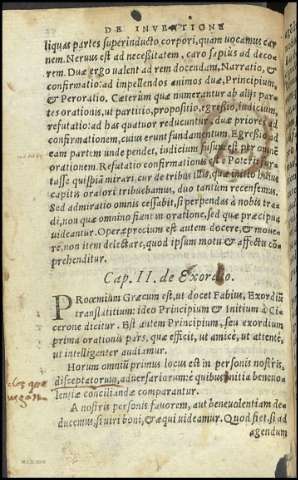 DE INVENTIONE
liquas partes superinducto corpori, quam vocamus car
nem. Nervus est ad necessitatem, caro sæpius ad deco-
rem. Duæ ergo valent ad rem docendam, Narratio, &
confirmatio: ad impellendos animos duæ, Principium,
& Peroratio. Cæterùm quæ numerantur ab alijs par-
tes orationis, ut partitio, propositio, egressio, iudicium,
refutatio: ad has quatuor reducuntur, duæ priores ad
confirmationem, cuius erunt fundamentum. Egressio ad
eam partem unde pendet, iudicium fusum est per omnem
orationem. Refutatio confirmationis est. Poterit for-
tasse quispiã mirari, cur de tribus illis, quæ initio huius
capitis oratori tribuebamus, duo tantùm recensemus.
Sed admiratio omnis cessabit, si perpendas à nobis tra-
di, non quæ omnino fiant in oratione, sed quæ præcipua
videantur. Operæprecium est autem docere, & move-
re, non item delectare, quod ipsum motu & affectu cõ-
prehenditur.
Cap. II. de Exordio.
PRoœmium Græcum est, ut docet Fabius, Exordiũ
translatitium: ideo Principium & Initium à Ci-
cerone dicitur. Est autem Principium, seu exordium
prima orationis pars, quæ efficit, ut amicè, ut attentè,
ut intelligenter audiamur.
Horum omniũ primus locus est in personis nostris,
disceptatorum, adversariorum: è quibus initia benevo-
lentiæ conciliandæ comparantur.
A nostris personis favorem, aut benevolentiam de-
ducemus, si viri boni, & æqui videamur. Quod fiet, si ad
agendum